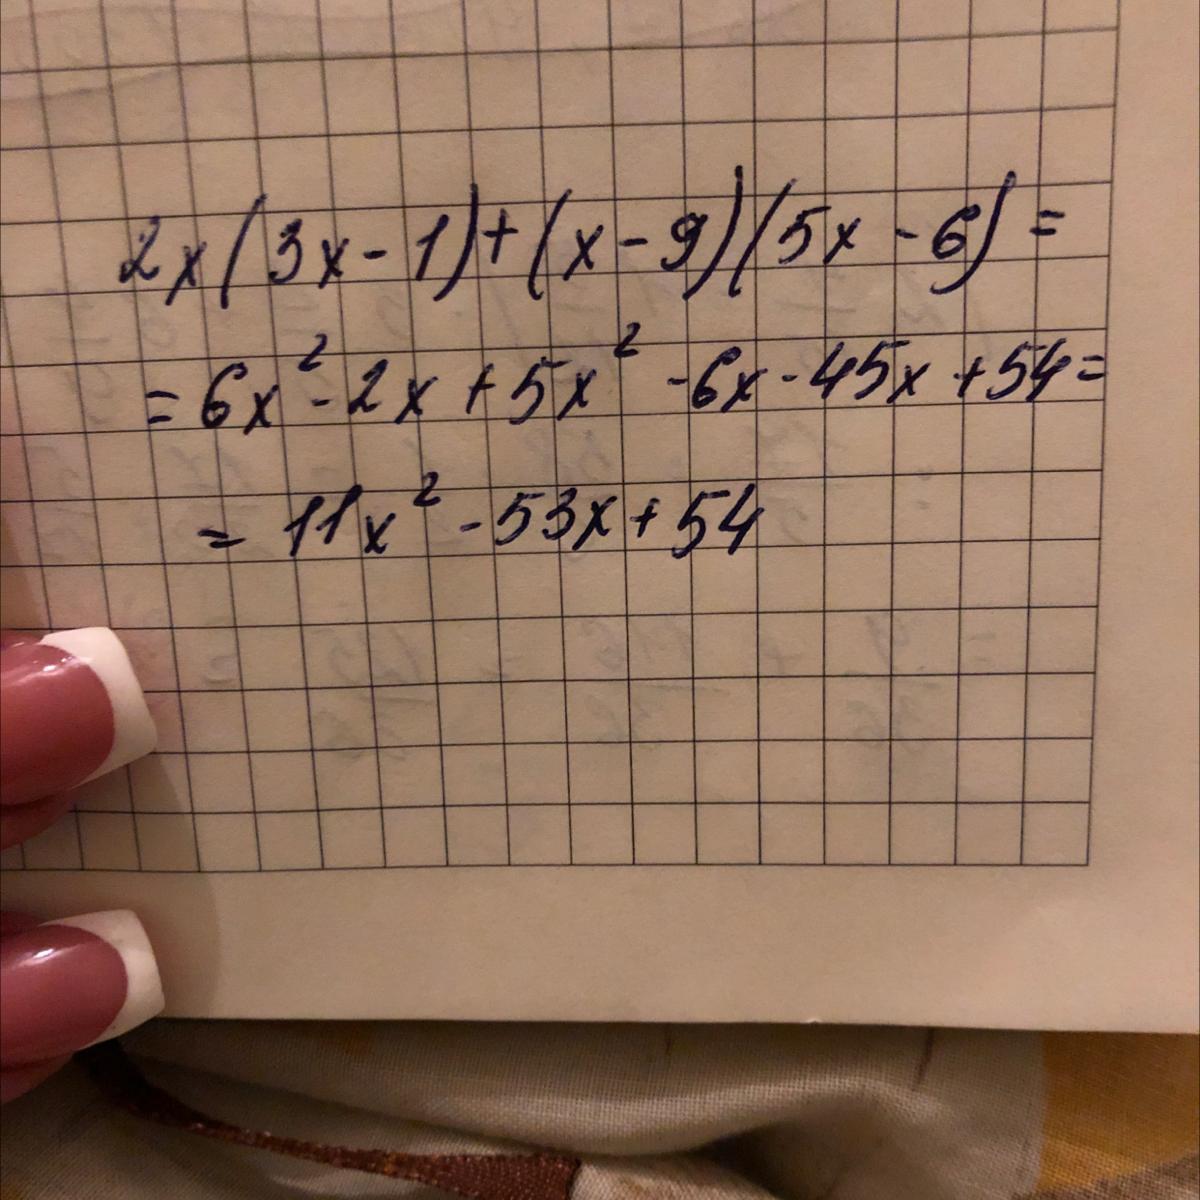 2x(3x-1)+(x-9)(5x-6)=
=6x²-2x+5x²-6x-45x+54=
=11x²-53x+54